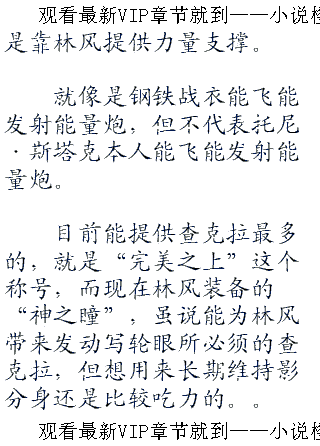 观看最新VIP章节就到——小说检
是靠林风提供力量支撑。
就像是钢铁战衣能飞能
发射能量炮，但不代表托尼
·斯塔克本人能飞能发射能
量炮。
目前能提供查克拉最多
的，就是“完美之上”这个
称号，而现在林风装备的
“神之瞳”，虽说能为林风
带来发动写轮眼所必须的查
克拉，但想用来长期维持影
分身还是比较吃力的。。
观看最新VIP章节就到——小说检